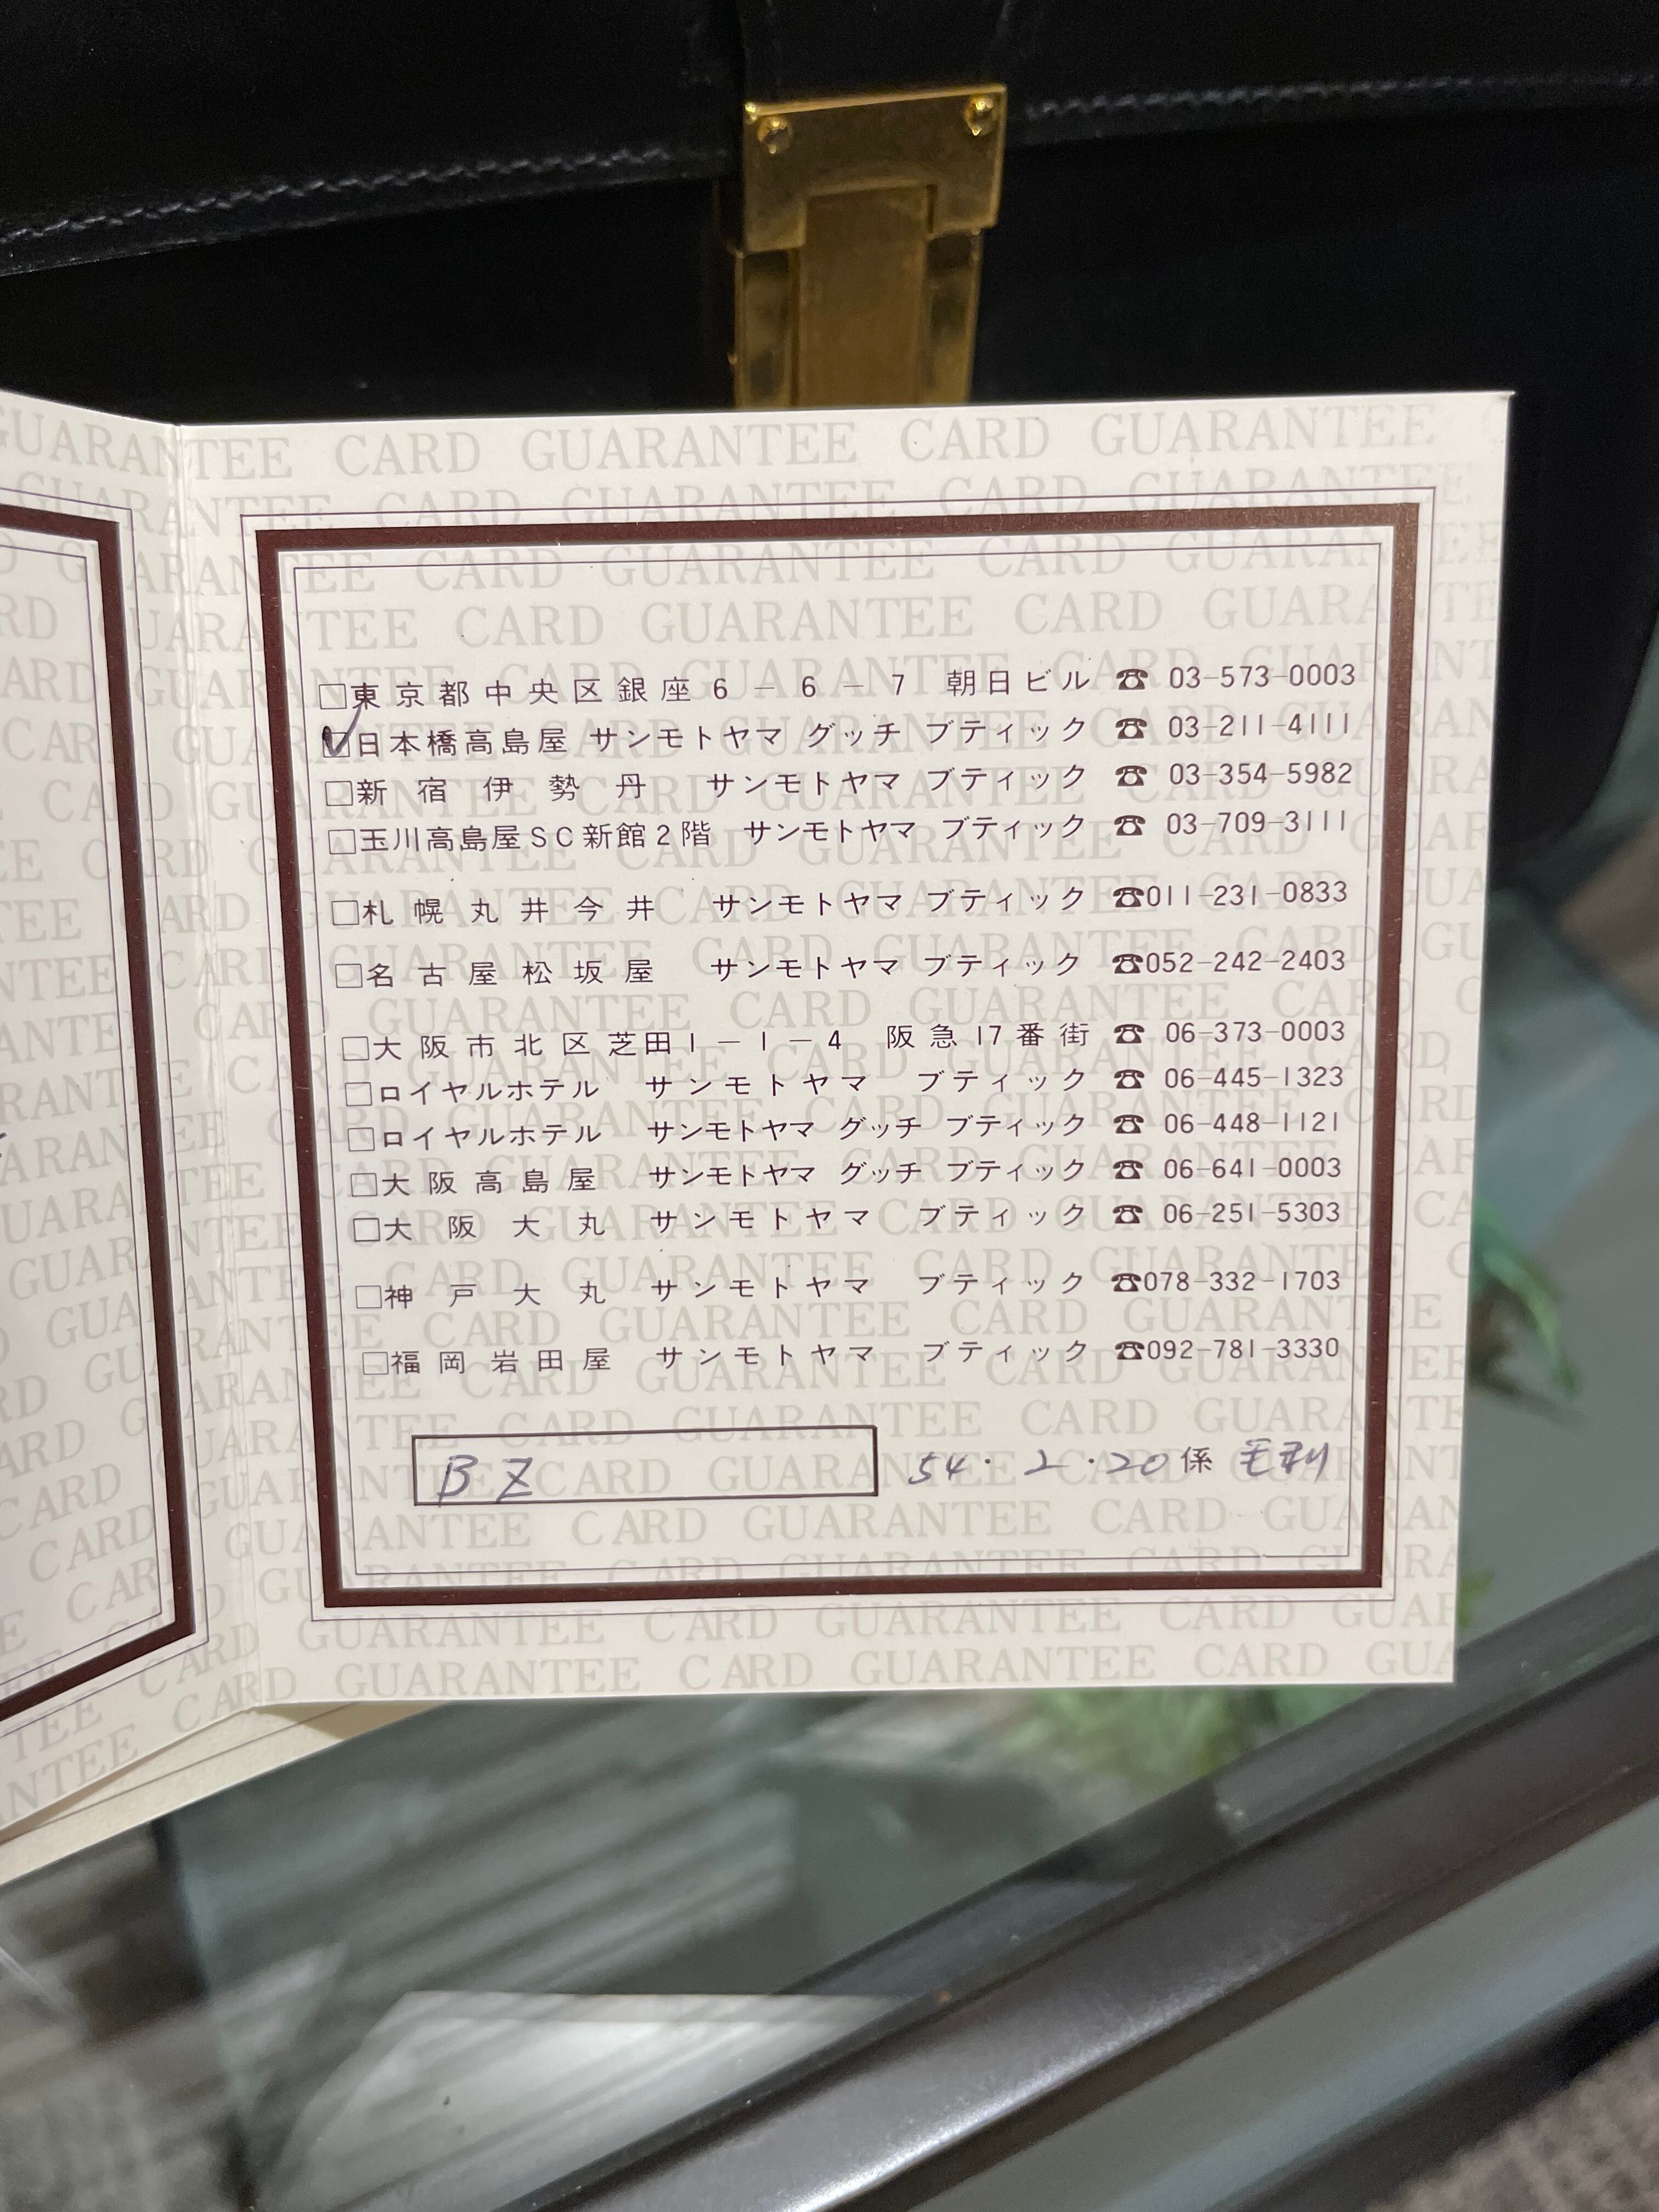 GUARANTEE CARD GUARANTEE CARD GUARANTEE
□東京都中央区銀座6-6-7 朝日ビル ☎ 03-573-0003
☑日本橋高島屋 サンモトヤマ グッチ ブティック ☎ 03-211-4111
□新宿伊勢丹 サンモトヤマ ブティック ☎ 03-354-5982
□玉川高島屋SC新館2階 サンモトヤマ ブティック ☎ 03-709-3111
□札幌丸井今井 サンモトヤマ ブティック ☎011-231-0833
□名古屋松坂屋 サンモトヤマ ブティック ☎052-242-2403
□大阪市北区芝田1-1-4 阪急17番街 ☎ 06-373-0003
□ロイヤルホテル サンモトヤマ ブティック ☎ 06-445-1323
□ロイヤルホテル サンモトヤマ グッチ ブティック ☎ 06-448-1121
□大阪高島屋 サンモトヤマ グッチ ブティック ☎ 06-641-0003
□大阪大丸 サンモトヤマ ブティック ☎ 06-251-5303
□神戸大丸 サンモトヤマ ブティック ☎078-332-1703
□福岡岩田屋 サンモトヤマ ブティック ☎092-781-3330
BZ 54・2・20 係